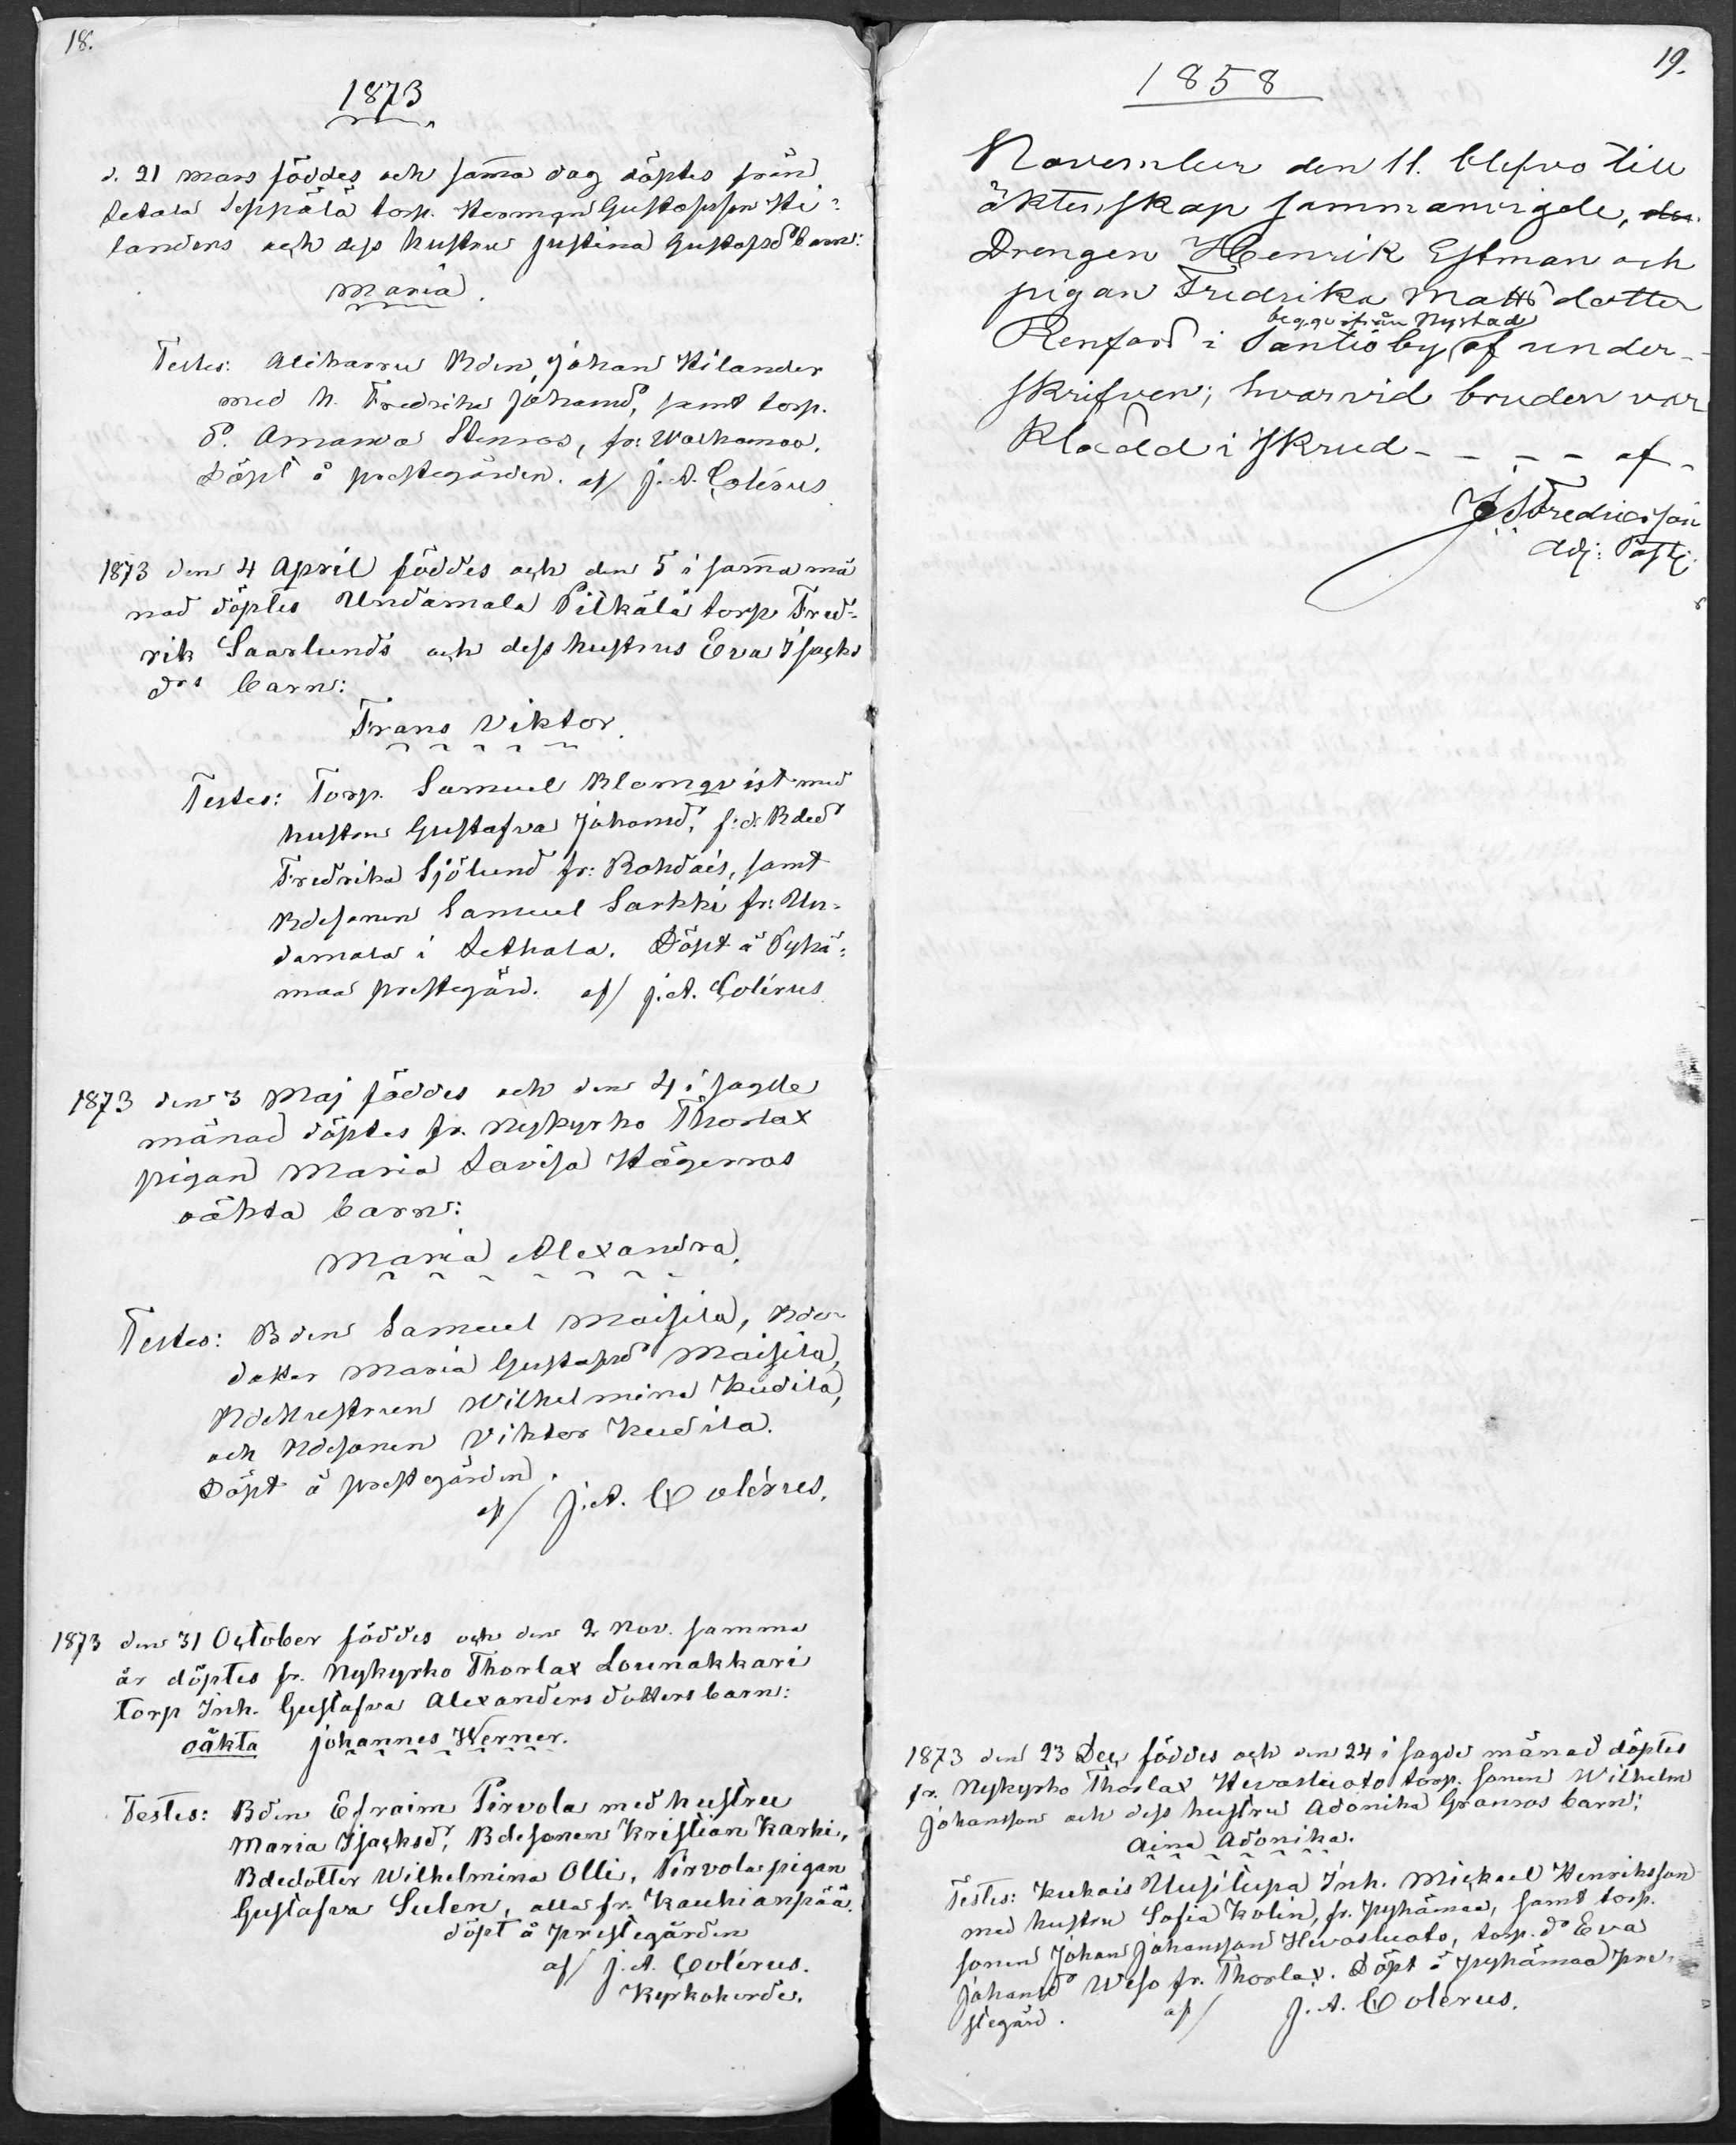 18.
1873
d. 21 mars föddes och samma dag döptes från
Letala Seppälä torp. Herman Gustafsson Hi-
landers och dess hustru Justina Gustafsd barn:
Maria.
Testes: Aliharru Bden, Johan Hilander
med h. Fredrika Johansd, samt torp.
d. Amanda Stenros, fr: Walkamaa.
Döpt å prestegården. af/ J. A. Colérus
1873 den 4 April föddes och den 5 i samma må
nad döptes Undamala Pilkälä torp Fred-
rik Saarlunds och dess hustrus Eva Isachs
drs barn:
Frans Viktor.
Testes: Torp. Samuel Blomqvist med
hustru Gustafva Johansd, f: d: Bded
Fredrika Sjölund fr: Rohdais, samt
Bdesonen Samuel Sarkki fr: Un-
damala i Lethala. Döpt å Pyhä-
maa prestegård. af/ J. A. Colérus
1873 den 3 Maj föddes och den 4 i sagde
månad döptes fr. Nykyrko Thorlax
pigan Maria Lovisa Hägerros
oäkta barn:
Maria Alexandra.
Testes: Bden Samuel Maisila, Bde-
dotter Maria Gustafsd Maisila,
Bdehustrun Wilhelmina Kudila,
och Bdesonen Viktor Kudila.
Döpt å prestegården.
af/ J. A. Colérus.
1873 den 31 October föddes och den 2 Nov. samma
år döptes fr. Nykyrko Thorlax Lounakkari
torp Inh. Gustafva Alexandersdotters barn:
oäkta Johannes Werner.
Testes: Bden Efraim Pirvola med hustru
Maria Isachsd, Bdesonen Kristian Karhi,
Bdedotter Wilhelmina Olli, Pirvola pigan
Gustafva Sulen, alla fr. Kauhianpää.
döpt å prestegården
af/ J. A. Colérus.
Kyrkoherde.
19.
1858
November den 11. blefvo till
äktenskap sammanvigde,
Drengen Henrik Estman och
pigan Fredrika Mattsdotter
begge ifrån Nystad
Renfors i Santio by, af under-
skrifven; hvarvid bruden var
klädd i skrud - - - - af -
J Fredricsson
Adj: Past:
1873 den 23 Dec, föddes och den 24 i sagde månad döptes
fr. Nykyrko Thorlax Hevosluoto torp. sonen Wilhelm
Johansson och dess hustru Adonika Granros barn:
Aina Adonika.
Testes: Kukais Uusitupa Inh. Mickael Henriksson
med hustru Sofia Kolin, fr. Pyhämaa, samt torp.
sonen Johan Johansson Hevosluoto, torp. d Eva
Johansd Weso fr. Thorlax. Döpt å Pyhämaa pre-
stegård. af/ J. A. Colérus.